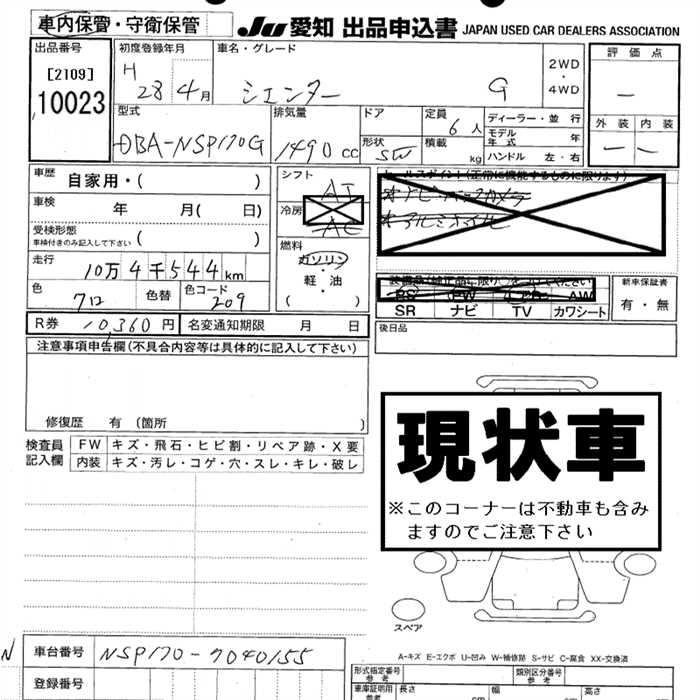 車内保管・守衛保管
JU 愛知 出品申込書 JAPAN USED CAR DEALERS ASSOCIATION
出品番号
[2109]
10023
初度登録年月
H 28年 4月
車名・グレード
シエンター G
2WD
・
4WD
評価点
―
外装 内装
― ―
型式
DBA-NSP170G
排気量
1490cc
ドア
形状
SW
定員
6人
積載
kg
ディーラー・並行
モデル年式 年
ハンドル 左・右
車歴 自家用・( )
車検 年 月( 日)
受検形態
車検付きのみ記入して下さい ( )
走行 10万4千544km
色 クロ 色替 色コード 209
シフト AT
冷房 AC
燃料
ガソリン
軽・油
( )
セールスポイント(正常に機能するものに限ります)
ナビ
アルミホイル
AW
SR ナビ TV カワシート
新車保証書
有・無
R券 10,360円 名変通知期限 月 日
後日品
注意事項申告欄(不具合内容等は具体的に記入して下さい)
修復歴 有 (箇所 )
検査員記入欄
FW キズ・飛石・ヒビ割・リペア跡・X要
内装 キズ・汚レ・コゲ・穴・スレ・キレ・破レ
現状車
※このコーナーは不動車も含み
ますのでご注意下さい
スペア
A-キズ E-エクボ U-凹み W-補修跡 S-サビ C-腐食 XX-交換済
N
車台番号 NSP170-7040155
登録番号
形式指定番号 類別区分番号
車庫証明用参考 長さ cm 幅 cm 高さ cm